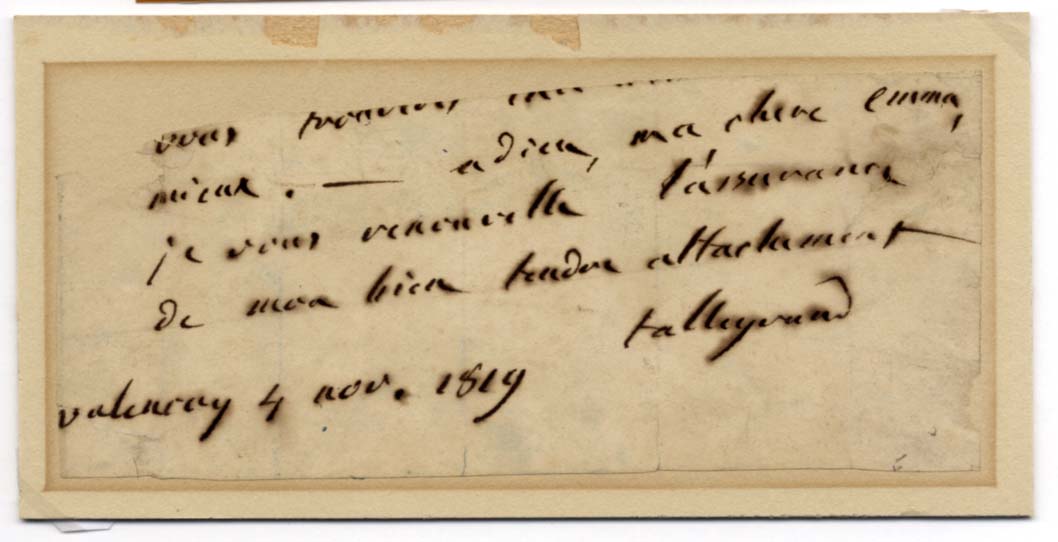 vous trouviez
mieux. — adieu, ma chere emma,
je vous renouvelle l'assurance
de mon bien tendre attachement
talleyrand
valençay 4 nov. 1819